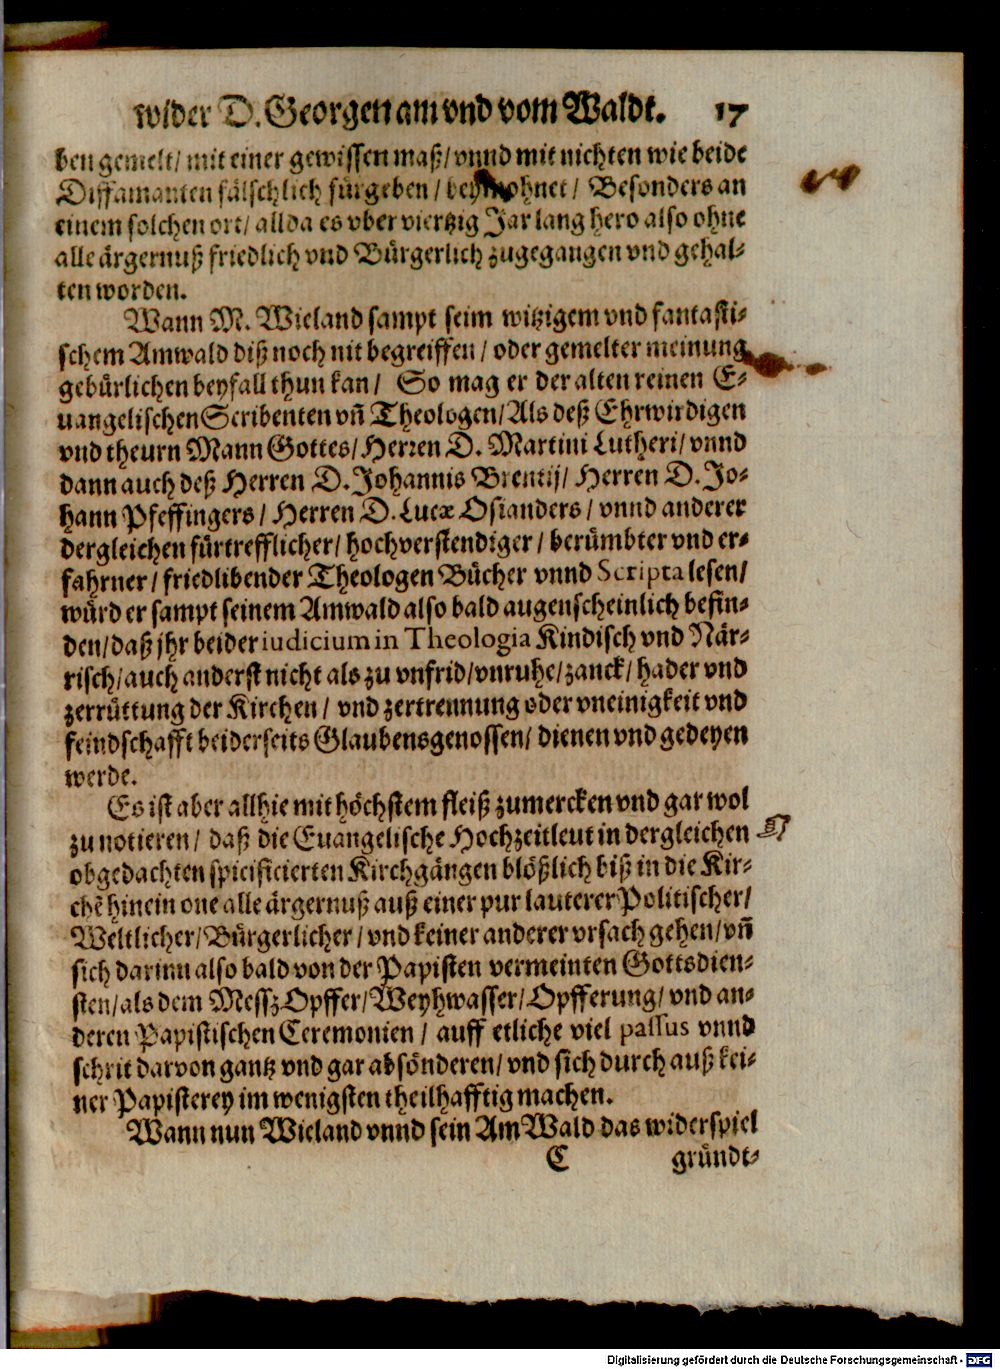 wider D. Georgen am vnd vom Waldt. 17
ben gemelt/ mit einer gewissen maß/ vnnd mit nichten wie beide
Diffamanten fälschlich fürgeben/ Besonders an
einem solchen ort/ allda es vber viertzig Jar lang hero also ohne
alle ärgernuß friedlich vnd Bürgerlich zugegangen vnd gehal-
ten worden.
Wann M. Wieland sampt seim witzigem vnd fantasti-
schem Amwald diß noch nit begreiffen/ oder gemelter meinung
gebürlichen beyfall thun kan/ So mag er der alten reinen E-
uangelischen Scribenten vñ Theologen/ Als deß Ehrwirdigen
vnd theurn Mann Gottes/ Herren D. Martini Lutheri/ vnnd
dann auch deß Herren D. Johannis Brentij/ Herren D. Jo-
hann Pfeffingers/ Herren D. Lucæ Osianders/ vnnd anderer
dergleichen fürtrefflicher/ hochverstendiger/ berümbter vnd er-
fahrner/ friedlibender Theologen Bücher vnnd Scripta lesen/
würd er sampt seinem Amwald also bald augenscheinlich befin-
den/ daß jhr beider iudicium in Theologia Kindisch vnd När-
risch/ auch anderst nicht als zu vnfrid/ vnruhe/ zanck/ hader vnd
zerrüttung der Kirchen/ vnd zertrennung oder vneinigkeit vnd
feindschafft beiderseits Glaubensgenossen/ dienen vnd gedeyen
werde.
Es ist aber allhie mit höchstem fleiß zumercken vnd gar wol
zu notieren/ daß die Euangelische Hochzeitleut in dergleichen
obgedachten spicificierten Kirchgängen blößlich biß in die Kir-
chẽ hinein one alle ärgernuß auß einer pur lauterer Politischer/
Weltlicher/ Bürgerlicher/ vnd keiner anderer vrsach gehen/ vñ
sich darinn also bald von der Papisten vermeinten Gottsdien-
sten/ als dem Messz Opffer/ Weyhwasser/ Opfferung/ vnd an-
deren Papistischen Ceremonien/ auff etliche viel passus vnnd
schrit darvon gantz vnd gar absönderen/ vnd sich durch auß kei-
ner Papisterey im wenigsten theilhafftig machen.
Wann nun Wieland vnnd sein AmWald das widerspiel
C gründt-
Digitalisierung gefördert durch die Deutsche Forschungsgemeinschaft - DFG